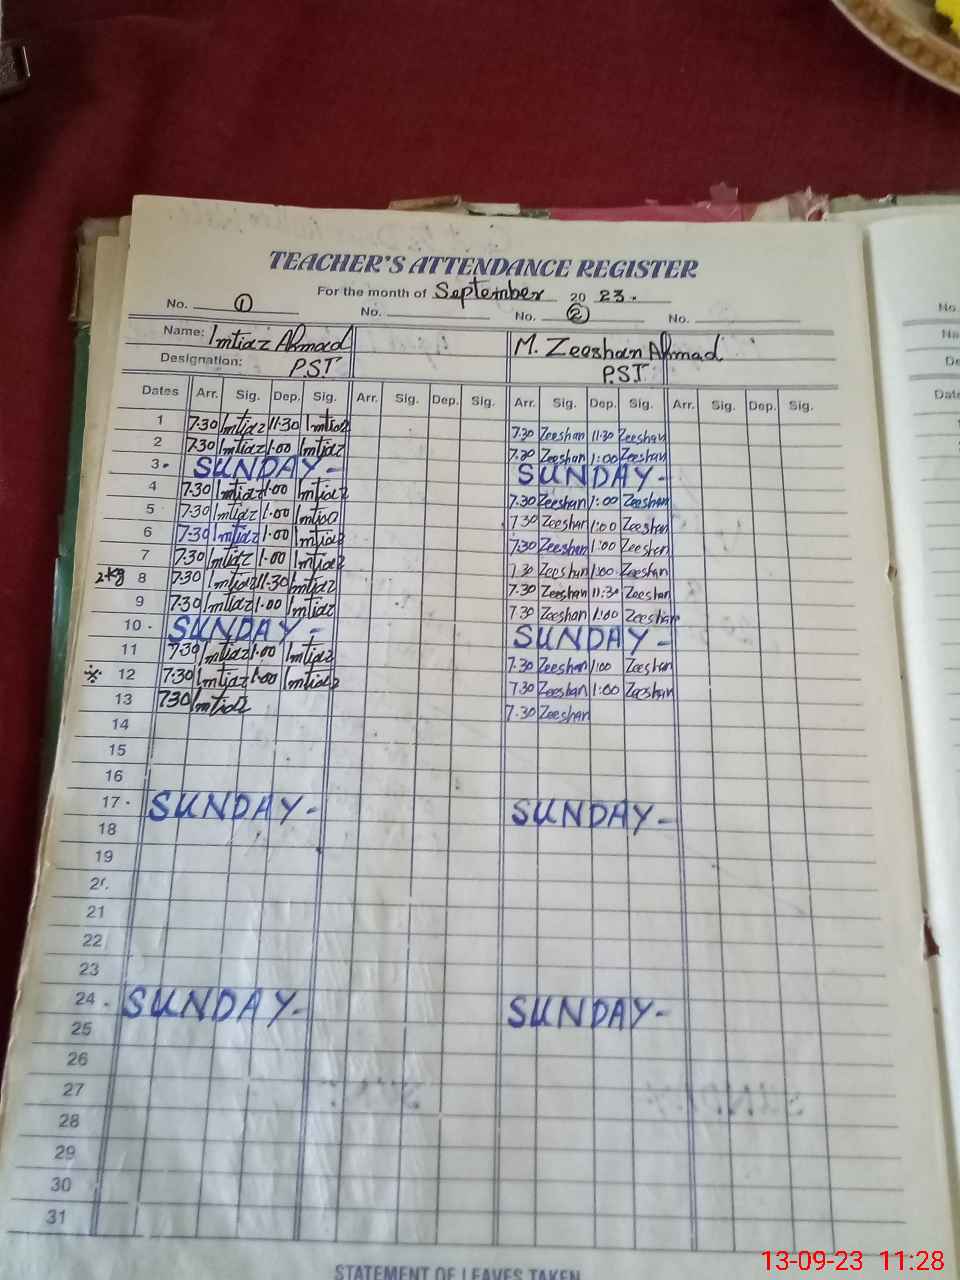 TEACHER'S ATTENDANCE REGISTER
For the month of September 2023.
No. 1 No. No. 2 No. No.
Name: Imtiaz Ahmad M. Zeeshan Ahmad
Designation: PST PST De
Dates Arr. Sig. Dep. Sig. Arr. Sig. Dep. Sig. Arr. Sig. Dep. Sig. Arr. Sig. Dep. Sig. Date
1 7.30 Imtiaz 11.30 Imtiaz 7.30 Zeeshan 11.30 Zeeshan
2 7.30 Imtiaz 1.00 Imtiaz 7.30 Zeeshan 1:00 Zeeshan
3. SUNDAY - SUNDAY -
4 7.30 Imtiaz 1.00 Imtiaz 7.30 Zeeshan 1:00 Zeeshan
5 7.30 Imtiaz 1.00 Imtiaz 7.30 Zeeshan 1:00 Zeeshan
6 7.30 Imtiaz 1.00 Imtiaz 7.30 Zeeshan 1:00 Zeeshan
7 7.30 Imtiaz 1.00 Imtiaz 7.30 Zeeshan 1:00 Zeeshan
8 7.30 Imtiaz 11.30 Imtiaz 7.30 Zeeshan 11:30 Zeeshan
9 7.30 Imtiaz 1.00 Imtiaz 7.30 Zeeshan 1:00 Zeeshan
10. SUNDAY - SUNDAY -
11 7.30 Imtiaz 1.00 Imtiaz 7.30 Zeeshan 1:00 Zeeshan
12 7.30 Imtiaz 1.00 Imtiaz 7.30 Zeeshan 1:00 Zeeshan
13 730 Imtiaz 7.30 Zeeshan
14
15
16
17. SUNDAY - SUNDAY -
18
19
21
22
23
24. SUNDAY - SUNDAY -
25
26
27
28
29
30
31
STATEMENT OF LEAVES TAKEN
13-09-23 11:28